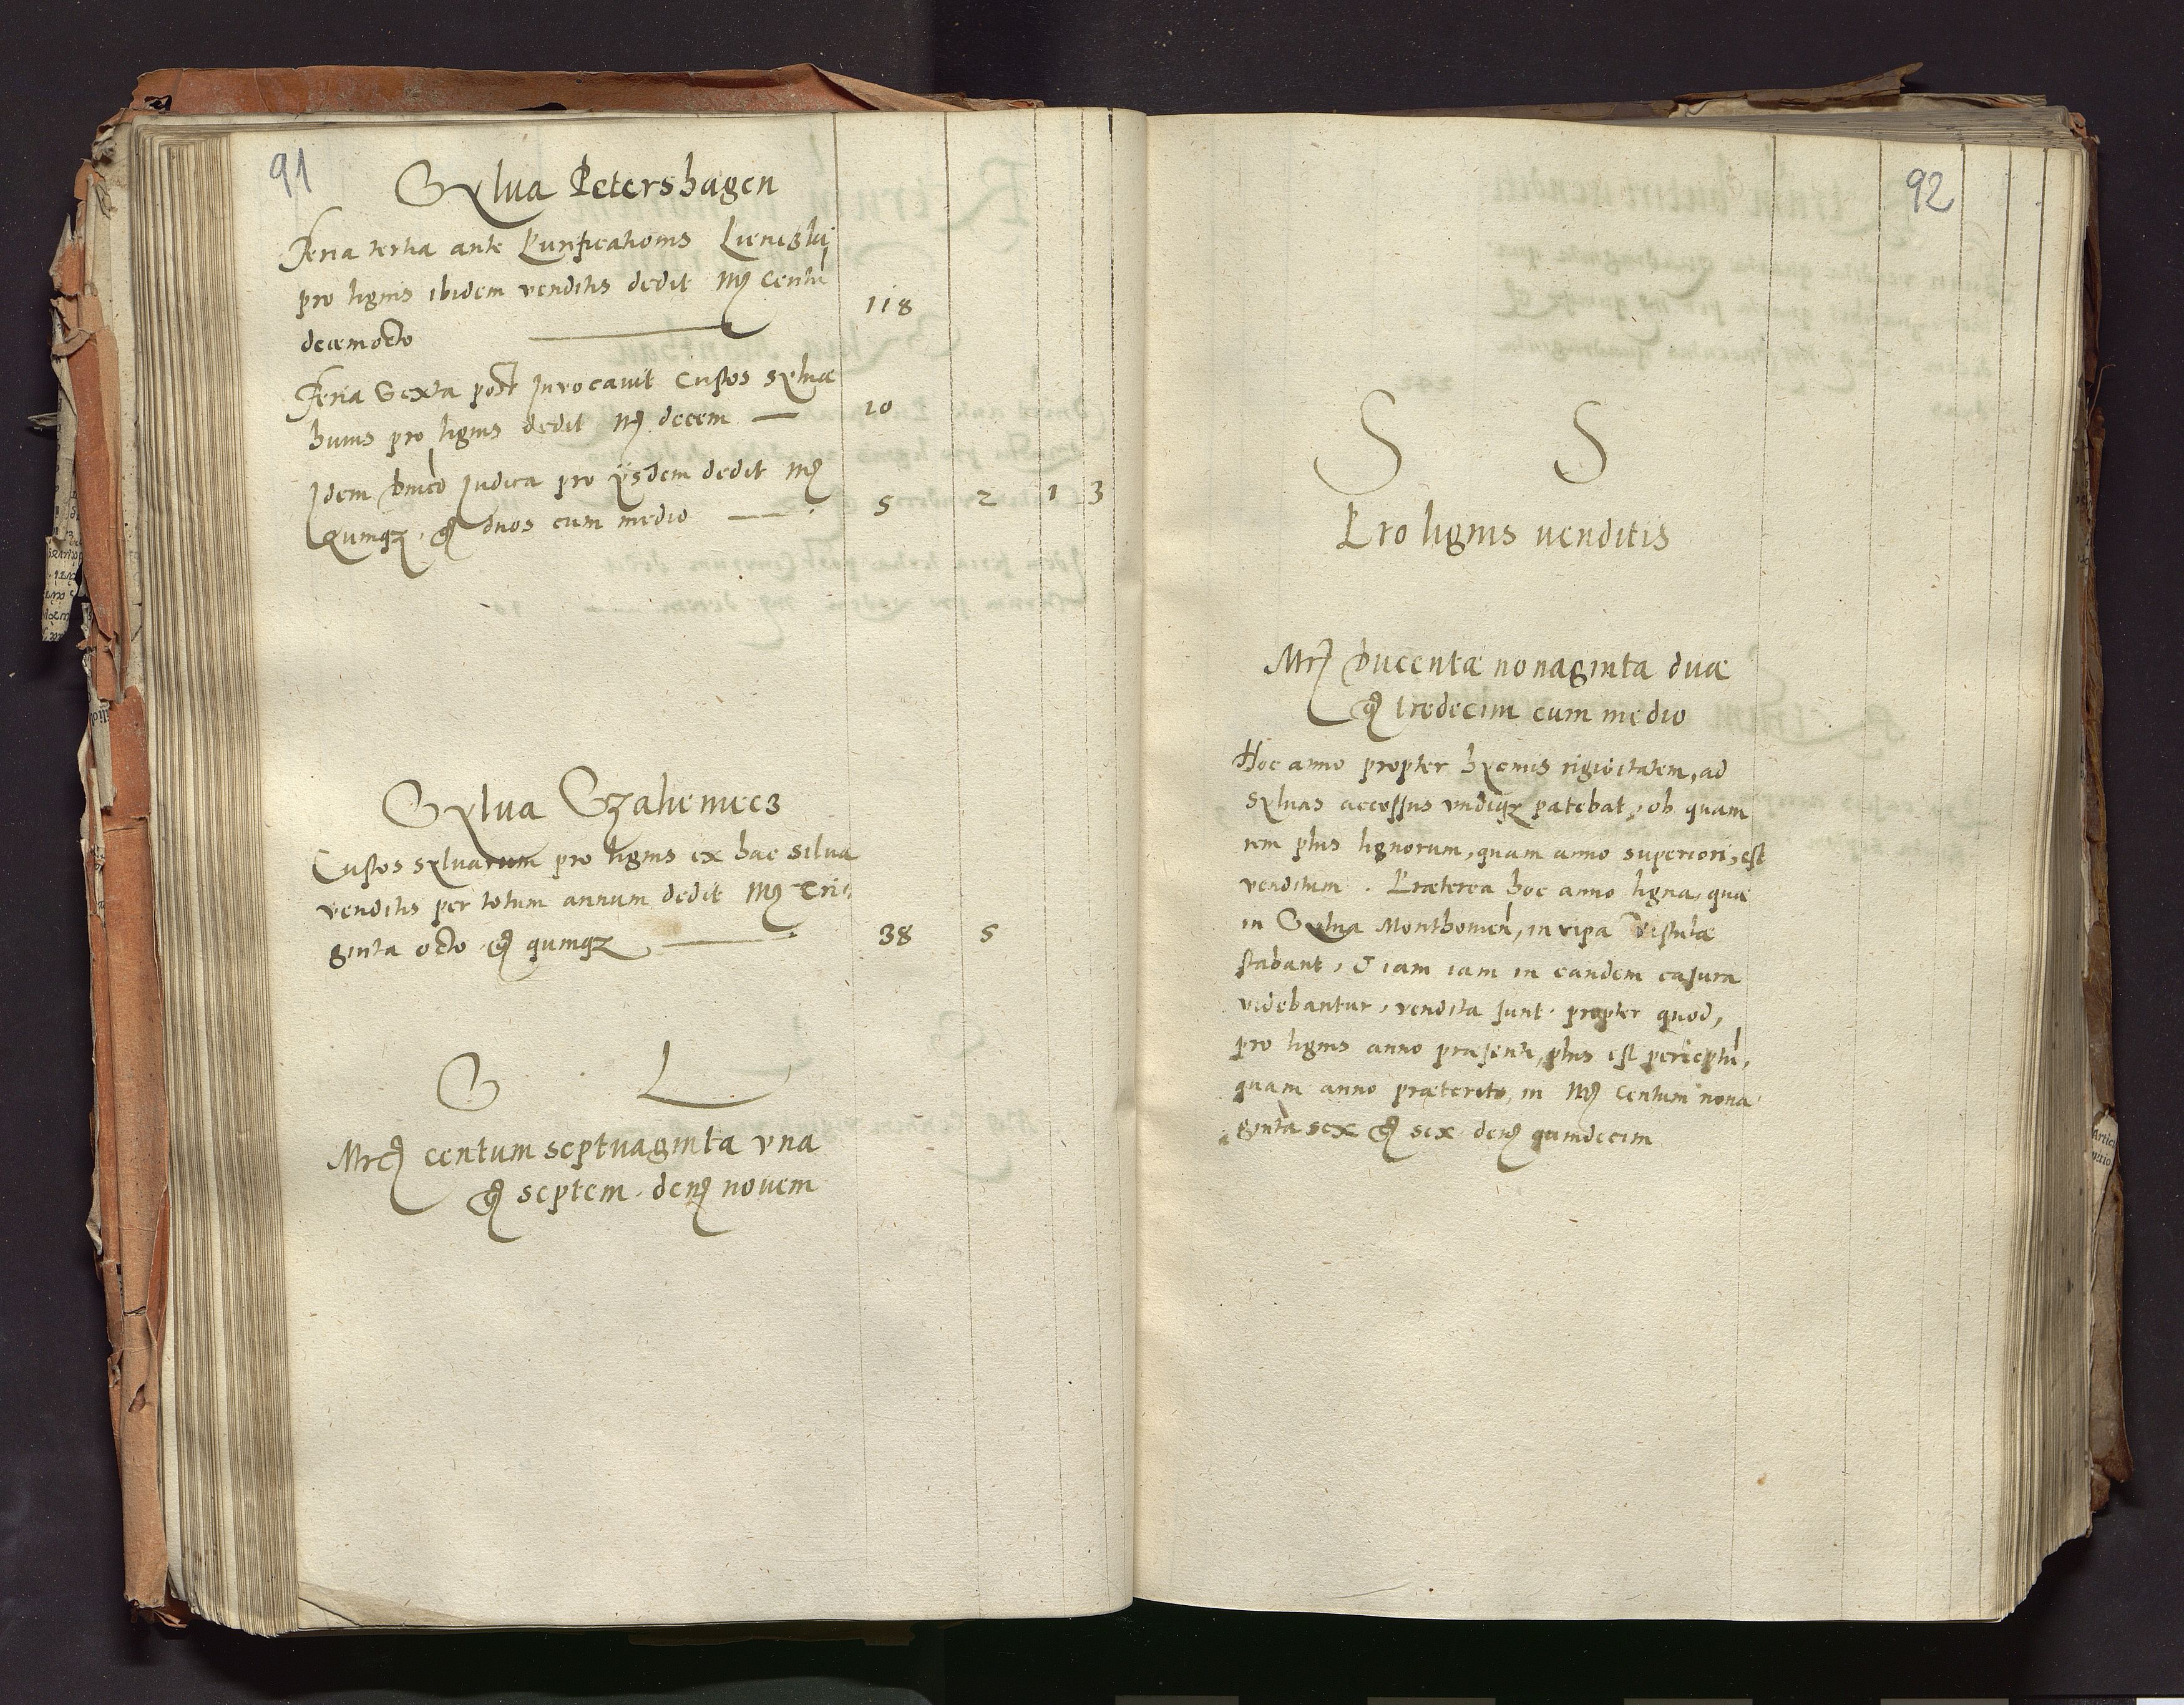 91
Sylua Petershagen
Feria tertia ante Purificationis
pro lignis ibidem venditis dedit Mͬ Centū
decemocto 118
Feria Sexta post Inuocauit Custos syluæ
huius pro lignis dedit Mͬ decem 10
Idem Dnico Iudica pro ijsdem dedit Mͬ
quinqȝ, gͬ duos cum medio 5 2 1 3
Sylua Czaheniecz
Custos syluarum pro lignis ex hac silua
venditis per totum annum dedit Mͬ Tri
ginta octo gͬ quinqȝ 38 5
S L
Mrͨ centum septuaginta vna
gͬ septem denͬ nouem
92
S S
Pro lignis uenditis
Mrͨ Ducentæ nonaginta duæ
gͬ tredecim cum medio
Hoc anno propter hyemis rigiditatem, ad
syluas accessus vndiqȝ patebat, ob quam
rem plus lignorum, quam anno superiori, est
venditum. Præterea hoc anno ligna, quæ
in Sylua in ripa Vistulæ
stabant, & iam iam in eandem casura
videbantur, vendita sunt. propter quod,
pro lignis anno præsenti, plus est perceptū,
quam anno præterito, in Mͬ Centum nona
ginta sex gͬ sex denͬ quindecim